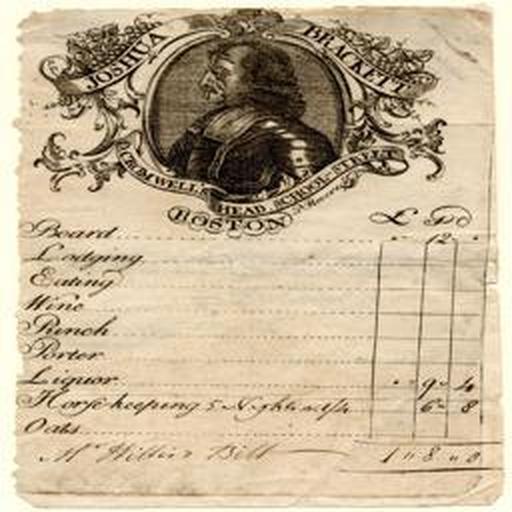 JOSHUA BRACKETT
CROMWELL'S HEAD SCHOOL STREET
BOSTON
£ S D
Board 12
Lodging
Eating
Wine
Punch
Porter
Liquor 9 4
Horse keeping 5 Nights 6 8
Oats
Mr Bill 1 " 8 " 0